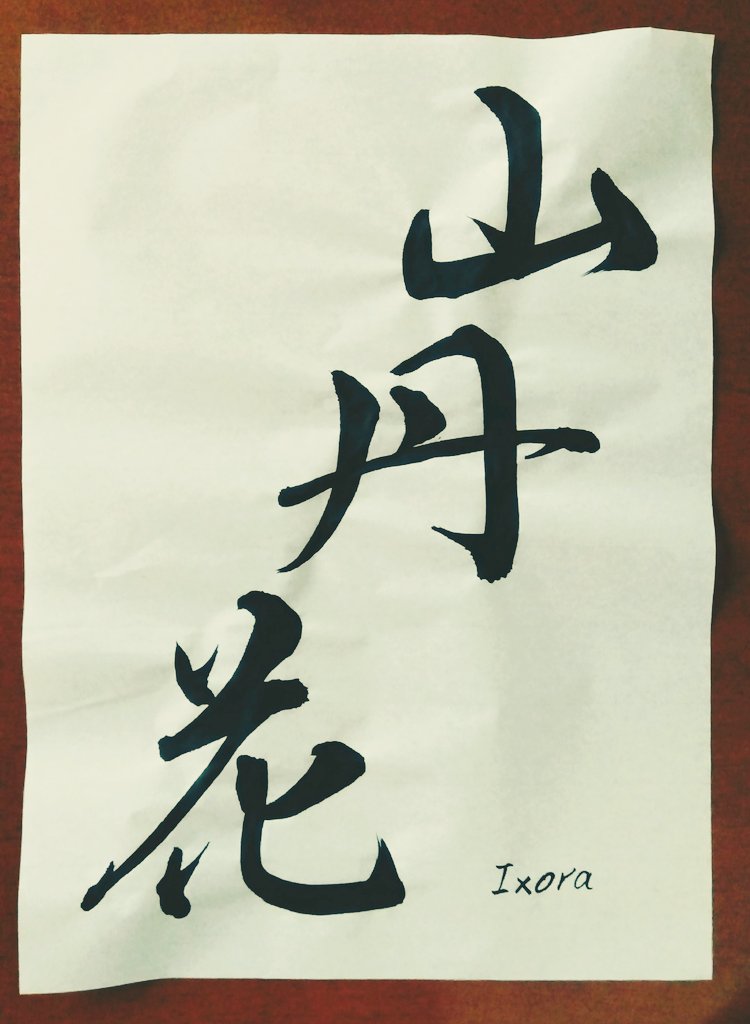 山丹花
Ixora